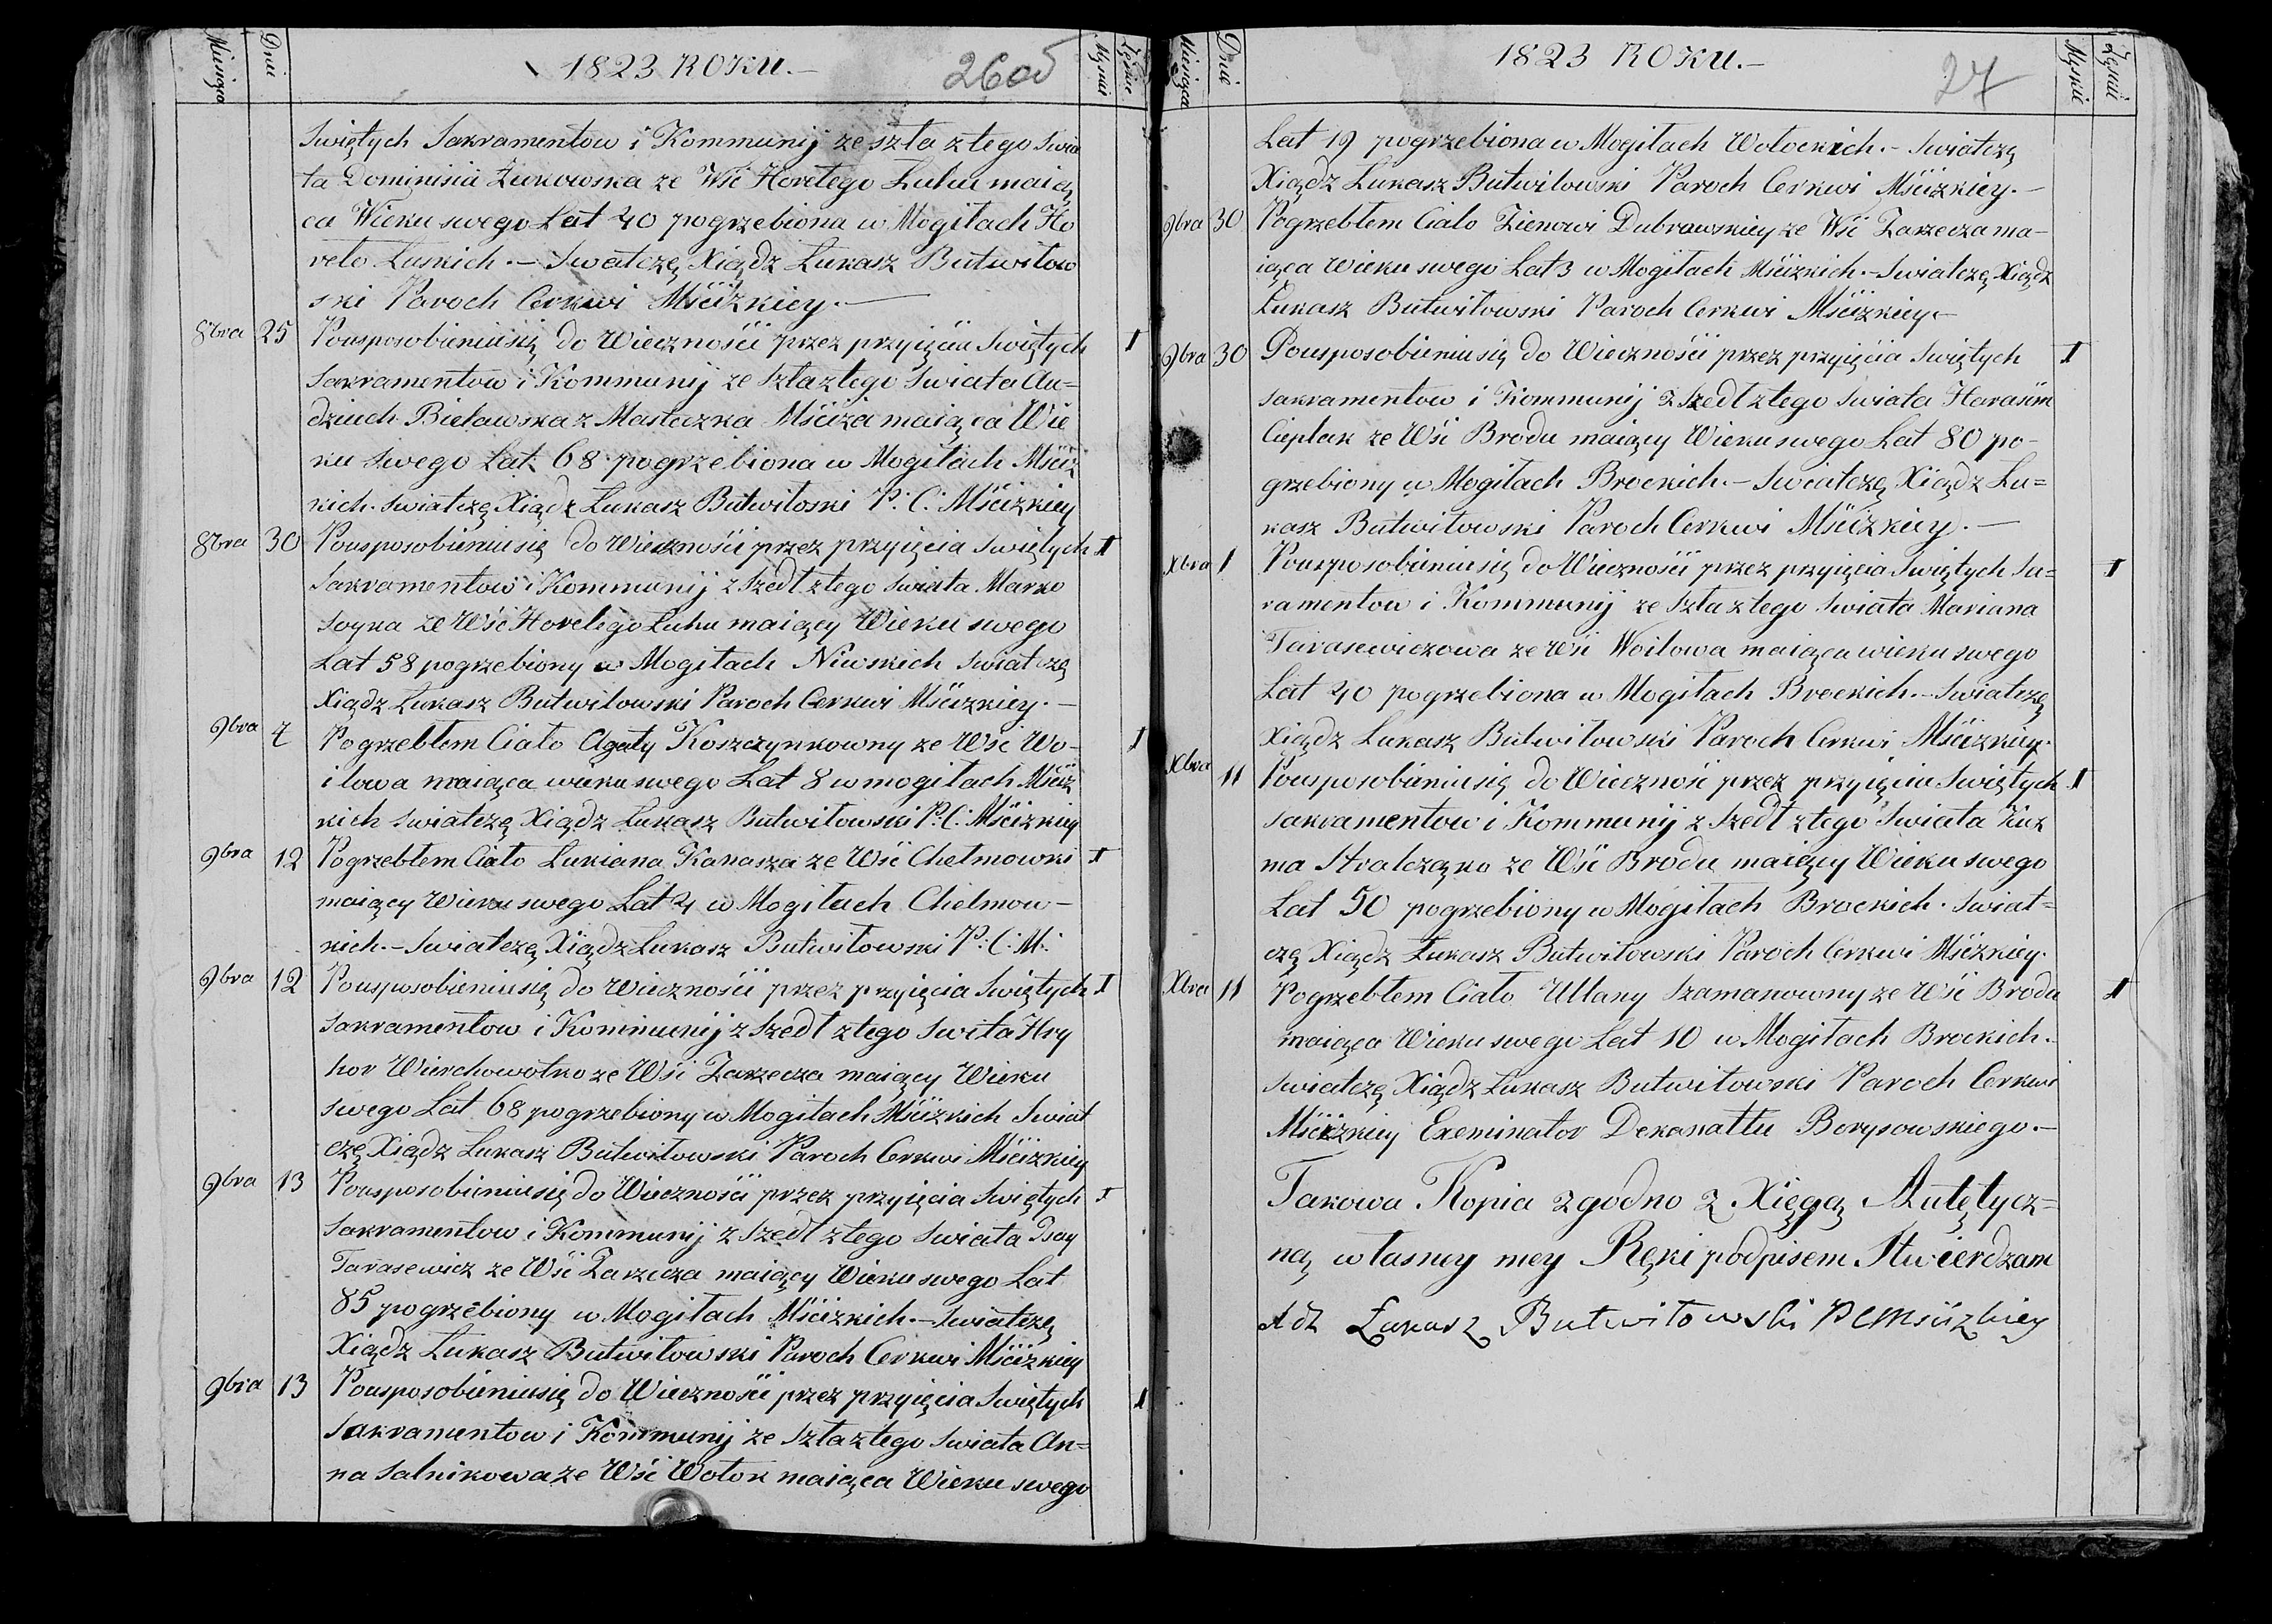 Miesiąca
Dnie
1823 ROKU.—
26об
Męskie
Żęskie
Swiętych Sakramentow i Kommunij ze szła z tego Swia
ta Dominisia Żukowska ze Wśi Horełego Łuhu maią
ca Wieku swego Lat 40 pogrzebiona w Mogiłach Ho
reło Łuskich.— Swatczę Xiądz Łukasz Butwiłow
ski Paroch Cerkwi Mścizkiey.—
8bra 25 Pousposobieniu się do Wiecznośći przez przyięcia Swiętych I
Sakramentow i Kommunij ze szła z tego Swiata Au=
dziuch Bieławska z Masteczka Mściża maiąca Wie
ku swego Lat 68 pogrzebiona w Mogiłach Mśćiz
kich. Swiatczę Xiądz Łukasz Butwiłoski P. C. Mścizkiey
8bra 30 Pousposobieniu się do Wiecznośći przez przyięcia Swiętych I
Sakramentow i Kommunij z szedł z tego Swiata Marko
Soyka ze Wśi Horełego Łuhu maiący Wieku swego
Lat 58 pogrzebiony w Mogiłach Niwskich Swiatczę
Xiądz Łukasz Butwiłowski Paroch Cerkwi Mścizkiey.—
9bra 4 Pogrzebłem Ciało Agaty Koszczynkowny ze Wśi Wo- I
iłowa maiąca wieku swego Lat 8 w mogiłach Mściz
kich Swiatczę Xiądz Łukasz Butwiłowski P. C. Mścizkiey
9bra 12 Pogrzebłem Ciało Łukiana Kanasza ze Wśi Chełmowki I
maiący Wieku swego Lat 4 w Mogiłach Chełmow-
kich.— Swiatczę Xiądz Łukasz Butwiłowski P. C. M.
9bra 12 Pousposobieniu się do Wiecznośći przez przyięcia Swiętych I
Sakramentow i Kommunij z szedł z tego Swita Hry
hor Wierchowotko ze Wśi Zarzecza maiący Wieku
swego Lat 68 pogrzebiony w Mogiłach Mścizkich Swiat
czę Xiądz Łukasz Butwiłowski Paroch Cerkwi Mścizkiey
9bra 13 Pousposobieniu się do Wiecznośći przez przyięcia Swiętych I
Sakramentow i Kommunij z szedł z tego Swiata Isay
Tarasewicz ze Wśi Zarzecza maiący Wieku swego Lat
85 pogrzebiony w Mogiłach Mścizkich.— Swiatczę
Xiądz Łukasz Butwiłowski Paroch Cerkwi Mścizkiey
9bra 13 Pousposobieniu się do Wiecznośći przez przyięcia Swiętych I
Sakramentow i Kommunij ze szła z tego Swiata An=
na Salnikowa ze Wśi Wołok maiąca Wieku swego
Miesiąca
Dnie
1823 ROKU.—
27
Męskie
Żęskie
Lat 19 pogrzebiona w Mogiłach Wołockich.— Swiatczę
Xiądz Łukasz Butwiłowski Paroch Cerkwi Mścizkiey.—
9bra 30 Pogrzebłem Ciało Zienowi Dubrawskiey ze Wśi Zarzecza ma-
iąca Wieku swego Lat 3 w Mogiłach Mścizkich.— Swiatczę Xiądz
Łukasz Butwiłowski Paroch Cerkwi Mścizkiey.—
9bra 30 Pousposobieniu się do Wiecznośći przez przyięcia Swiętych I
Sakramentow i Kommunij z szedł z tego Swiata Harasim
Cieplak ze Wśi Brodu maiący Wieku swego Lat 80 po-
grzebiony w Mogiłach Brockich.— Swiatczę Xiądz Łu=
kasz Butwiłowski Paroch Cerkwi Mścizkiey.—
Xbra 1 Pousposobieniu się do Wiecznośći przez przyięcia Swiętych Sa= I
ramentow i Kommunij ze szła z tego Swiata Mariana
Tarasewiczowa ze Wśi Woiłowa maiąca wieku swego
Lat 40 pogrzebiona w Mogiłach Brockich.— Swiatczę
Xiądz Łukasz Butwiłowski Paroch Cerkwi Mścizkiey.
Xbra 11 Pousposobieniu się do Wiecznośc przez przyięcia Swiętych I
Sakramentow i Kommunij z szedł z tego Swiata Kuz
ma Stralcząko ze Wśi Brodu maiący Wieku swego
Lat 50 pogrzebiony w Mogiłach Brockich. Swiat=
czę Xiądz Łukasz Butwiłowski Paroch Cerkwi Mścizkiey.
Xbra 11 Pogrzebłem Ciało Ullany Szamanowny ze Wśi Brodu I
maiąca Wieku swego Lat 10 w Mogiłach Brockich.
Swiatczę Xiądz Łukasz Butwiłowski Paroch Cerkwi
Mścizkiey Exeminator Dekanattu Borysowskiego.—
Takowa Kopia zgodno z Xięgą Autętycz=
ną własney mey Ręki podpisem Stwierdzam
Xdz Łukasz Butwiłowski P C Mścizkiey